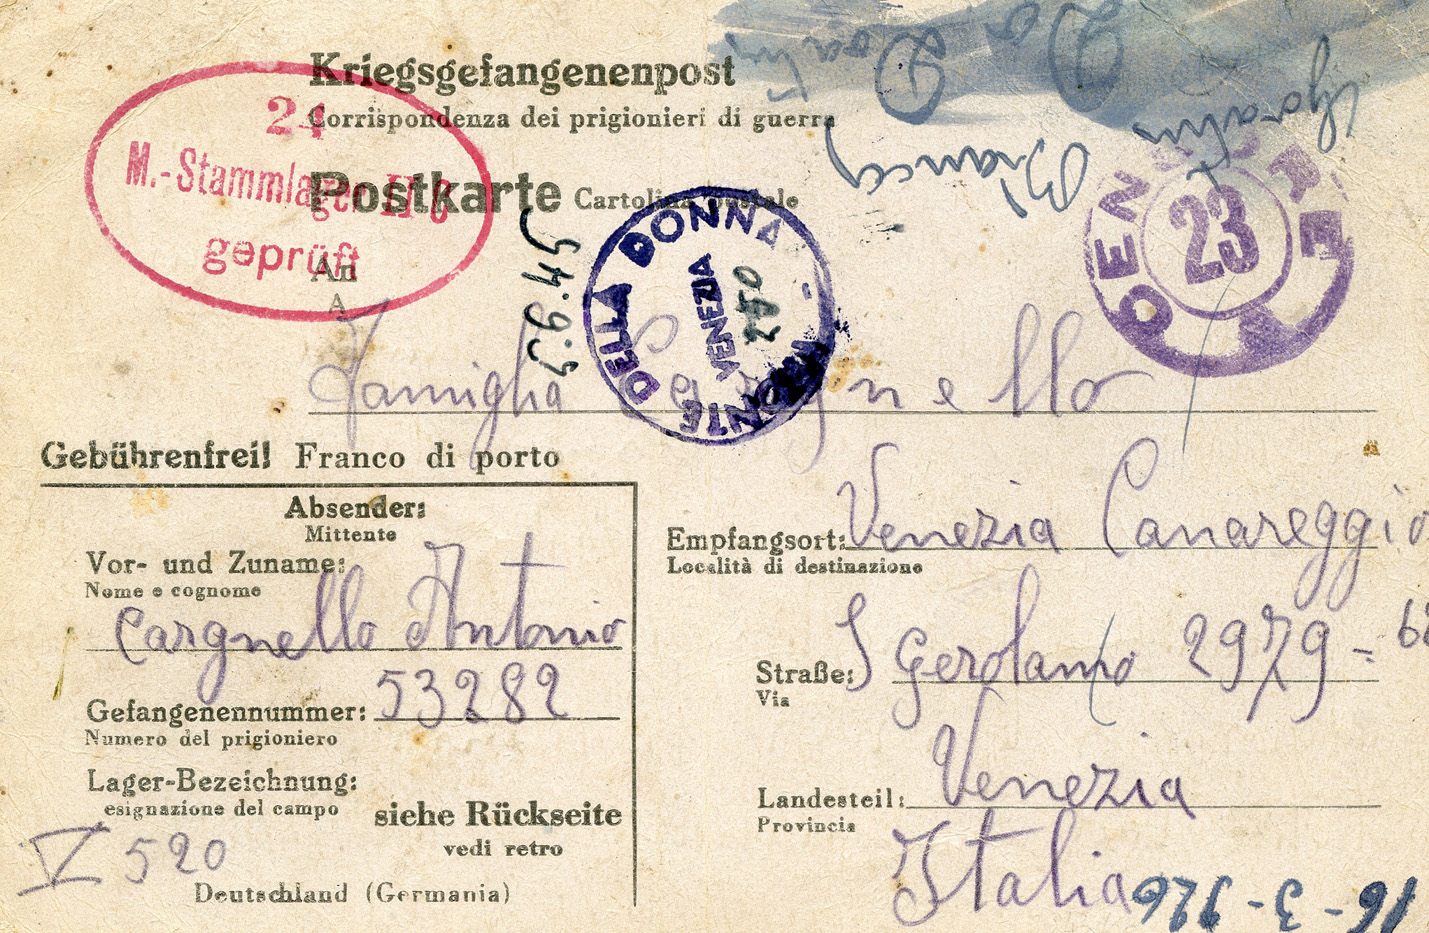 Kriegsgefangenenpost
Corrispondenza dei prigionieri di guerra
Postkarte Cartolina postale
An
A
24
M.-Stammlager II C
geprüft
DELLA DONNA
VENEZIA
23
Bianca
Famiglia Cargnello
Gebührenfrei! Franco di porto
Absender:
Mittente
Vor- und Zuname:
Nome e cognome
Cargnello Antonio
Gefangenennummer: 53282
Numero del prigioniero
Lager-Bezeichnung:
esignazione del campo
siehe Rückseite
vedi retro
V 520
Deutschland (Germania)
Empfangsort: Venezia Canareggio
Località di destinazione
Straße: S Gerolamo 2979 -
Via
Landesteil: Venezia
Provincia
Italia
16-3-926